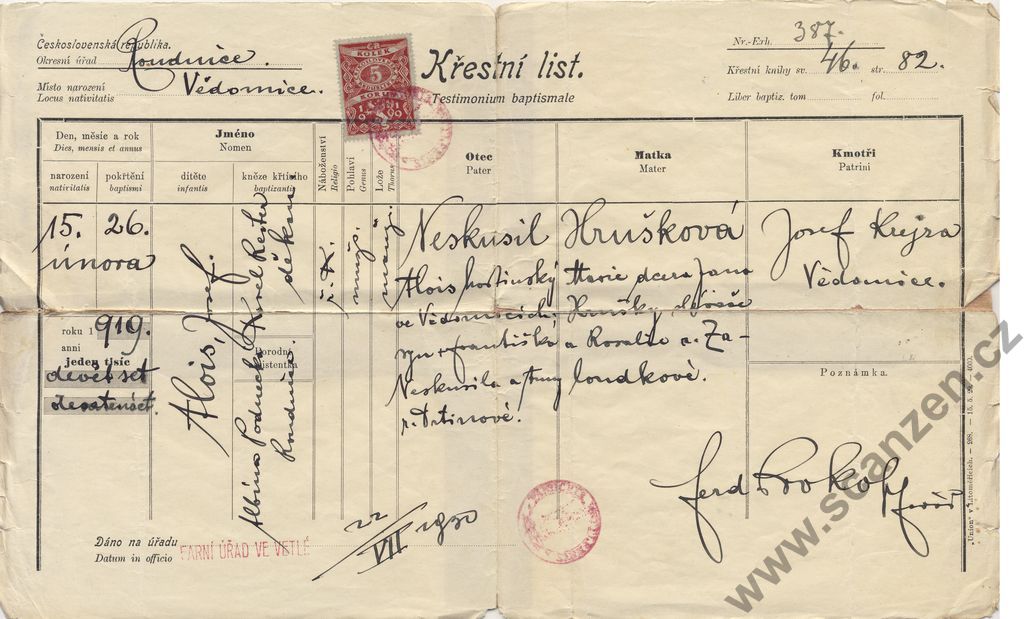 Československá republika.
Okresní úřad Roudnice.
Místo narození
Locus nativitatis Vědomice.
KOLEK
5
KORUN
Křestní list.
Testimonium baptismale
Nr.-Exh. 387.
Křestní knihy sv. 46. str. 82.
Liber baptiz. tom fol.
Den, měsíc a rok
Dies, mensis et annus
narození
nativitatis
pokřtění
baptismi
Jméno
Nomen
dítěte
infantis
kněze křtícího
baptizantis
Náboženství
Religio
Pohlaví
Genus
Lože
Thorus
Otec
Pater
Matka
Mater
Kmotři
Patrini
15. 26.
února
roku 1919.
anni
jeden tisíc
devět set
devatenáct.
Alois, Josef.
Karel
děkan
Porodní
asistentka
Albína
Roudnice.
ř. k.
muž.
manž.
Neskusil
Alois hostinský
ve Vědomicích,
syn Františka
Neskusila a Anny
r. Drtinové.
Hrušková
Marie dcera Jana
Hrušky
a Rosalie r. Za-
loudkové.
Josef Krejza
Vědomice.
Poznámka.
Ferd Prokop
farář
Dáno na úřadu
Datum in officio
FARNÍ ÚŘAD VE VETLÉ
22/VII 1930
„Union" v Litoměřicích. — 268. — 15. 5. 29. 4000.
www.scanzen.cz